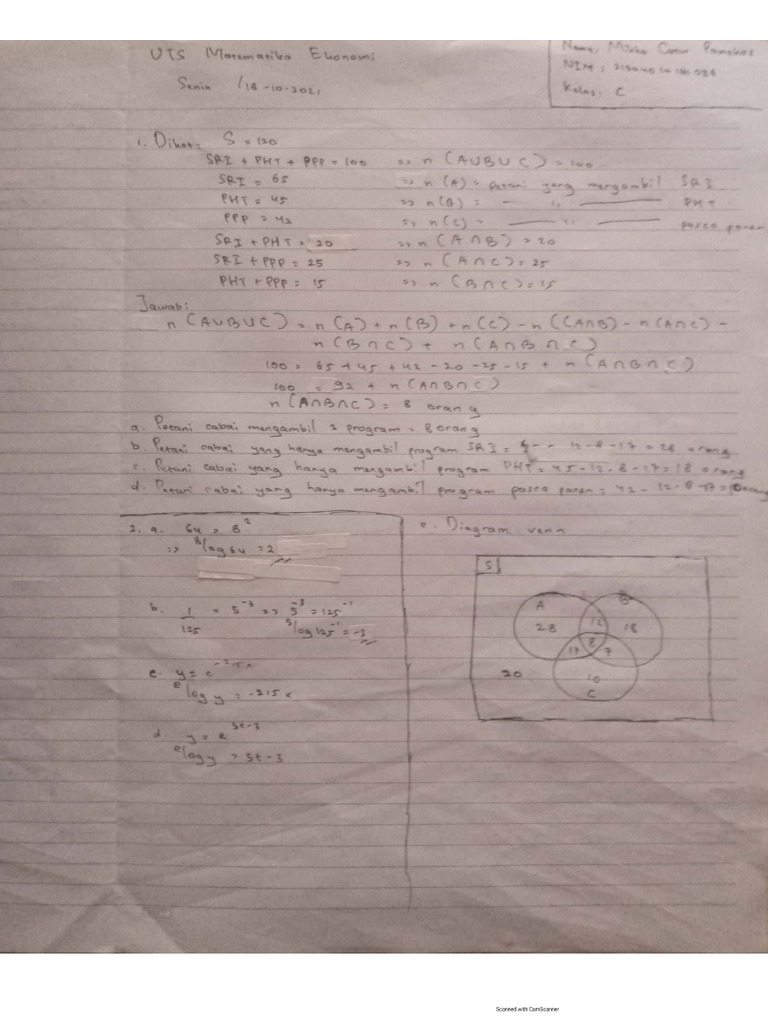 UTS Matematika Ekonomi
Senin /18-10-2021
Nama:
NIM:
Kelas: C
1. Diket: S = 120
SRI + PHT + PPP = 100 => n (A∪B∪C) = 100
SRI = 65 => n (A) = Petani yang mengambil SRI
PHT = 45 => n (B) = — ,, — PHT
PPP = 42 => n (C) = — ,, — pasca panen
SRI + PHT = 20 => n (A∩B) = 20
SRI + PPP = 25 => n (A∩C) = 25
PHT + PPP = 15 => n (B∩C) = 15
Jawab:
n (A∪B∪C) = n(A) + n(B) + n(C) - n((A∩B) - n(A∩C) -
n(B∩C) + n(A∩B∩C)
100 = 65 + 45 + 42 - 20 - 25 - 15 + n(A∩B∩C)
100 = 92 + n(A∩B∩C)
n(A∩B∩C) = 8 orang
a. Petani cabai mengambil 3 program = 8 orang
b. Petani cabai yang hanya mengambil program SRI = - 12 - 8 - 17 = 28 orang
c. Petani cabai yang hanya mengambil program PHT = 45 - 12 - 8 - 17 = 18 orang
d. Petani cabai yang hanya mengambil program pasca panen = 42 - 12 - 8 - 17 = orang
2. a. 64 = 8²
=> ⁸log 64 = 2
b. 1/125 = 5⁻³ => 5⁻³ = 125⁻¹
⁵log 125⁻¹ = -3
c. y = e⁻²¹⁵ˣ
ᵉlog y = -215x
d. y = e⁵ᵗ⁻³
ᵉlog y = 5t-3
e. Diagram venn
S
A B
28 12 18
8
17 7
20 10
C
Scanned with CamScanner